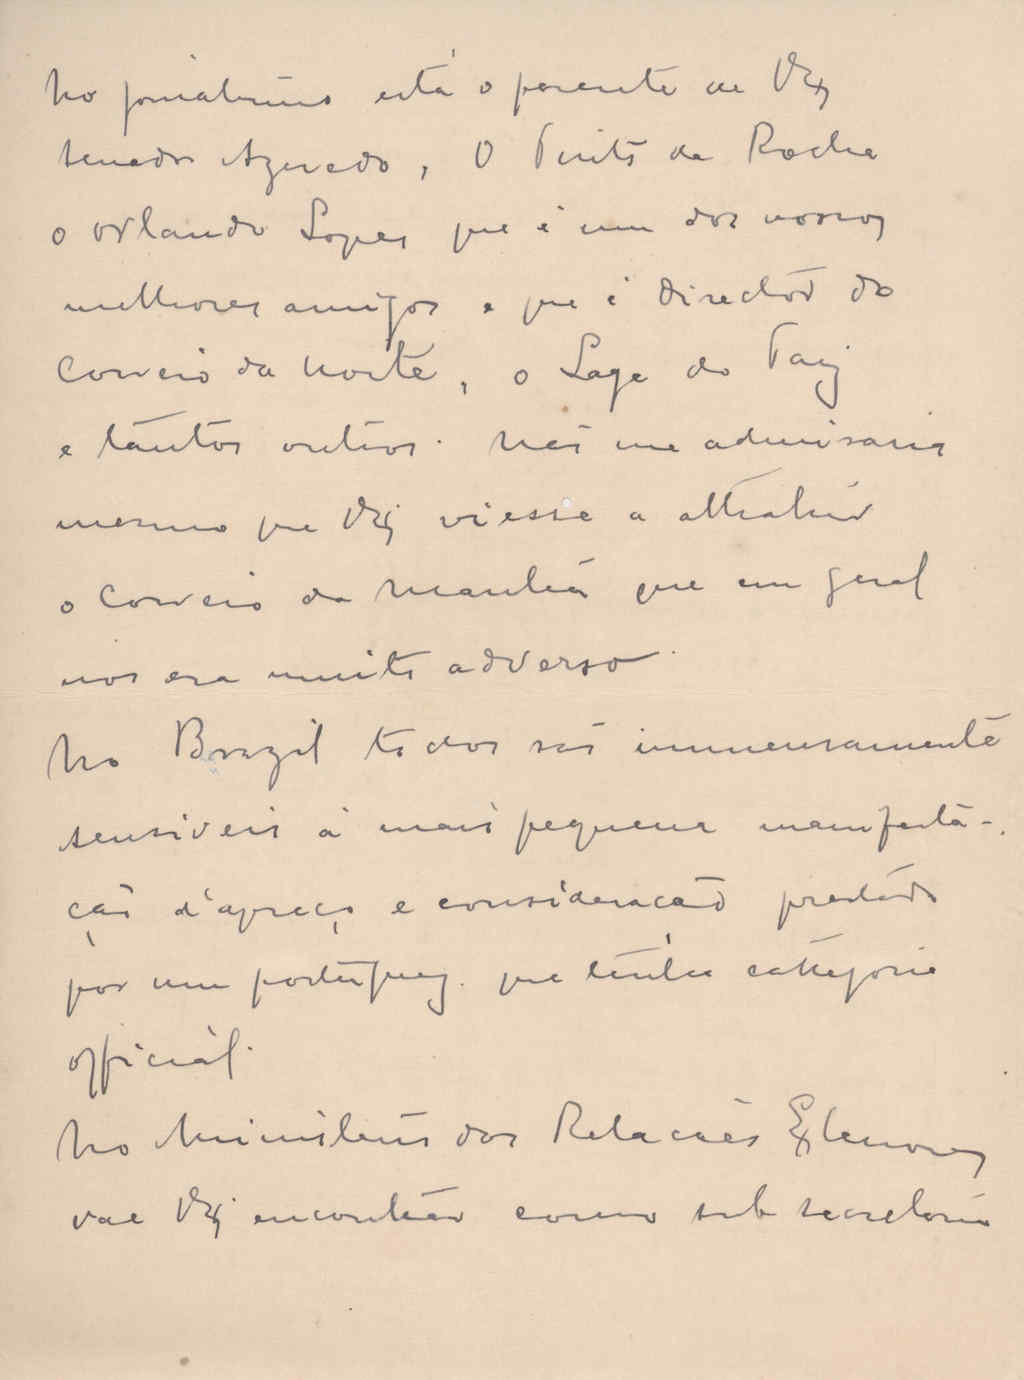 No jornalismo está o parente de VEx
senador Azeredo, O Pinto da Rocha
o Orlando Lopes que é um dos nossos
melhores amigos e que é director do
Correio da Noite, o Lage do Paiz
e tantos outros. Não me admiraria
mesmo que VEx viesse a attrahir
o Correio da Manhã que em geral
nos era muito adverso.
No Brazil todos são immensamente
sensiveis á mais pequena manifesta-
ção d'apreço e consideração prestada
por um portuguez que tenha cathegoria
official.
No Ministerio das Relações Exteriores
vae VEx encontrar como sub secretario